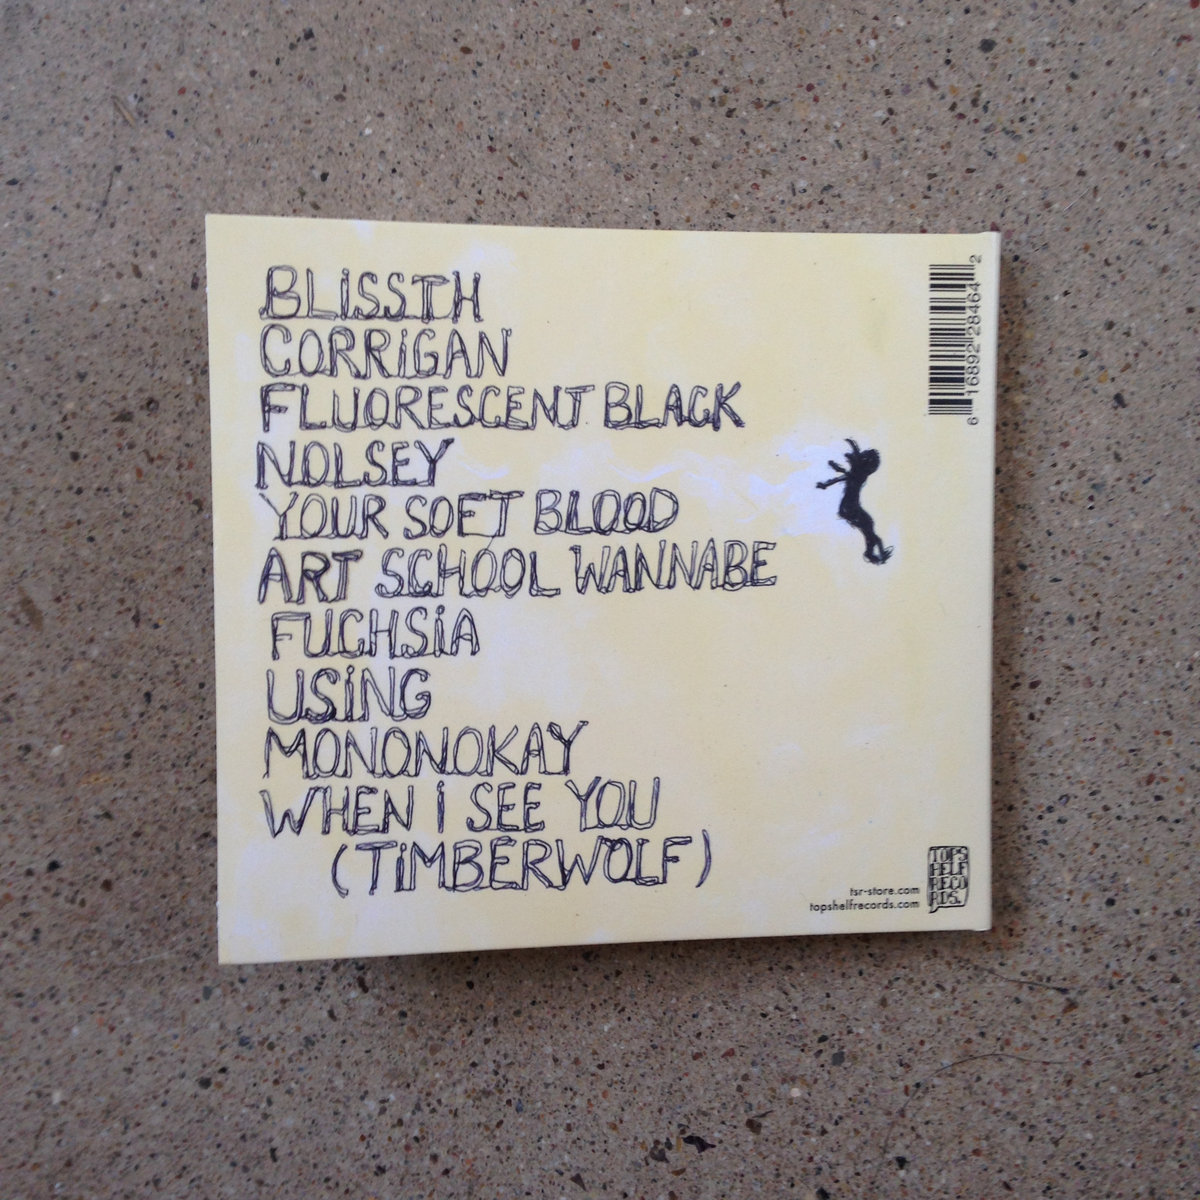 BLiSSTH
CORRiGAN
FLUORESCENT BLACK
NOLSEY
YOUR SOFT BLOOD
ART SCHOOL WANNABE
FUCHSiA
USiNG
MONONOKAY
WHEN i SEE YOU
(TiMBERWOLF)
6 16892 28464 2
tsr-store.com
topshelfrecords.com
TOPS
HELF
RECO
RDS.